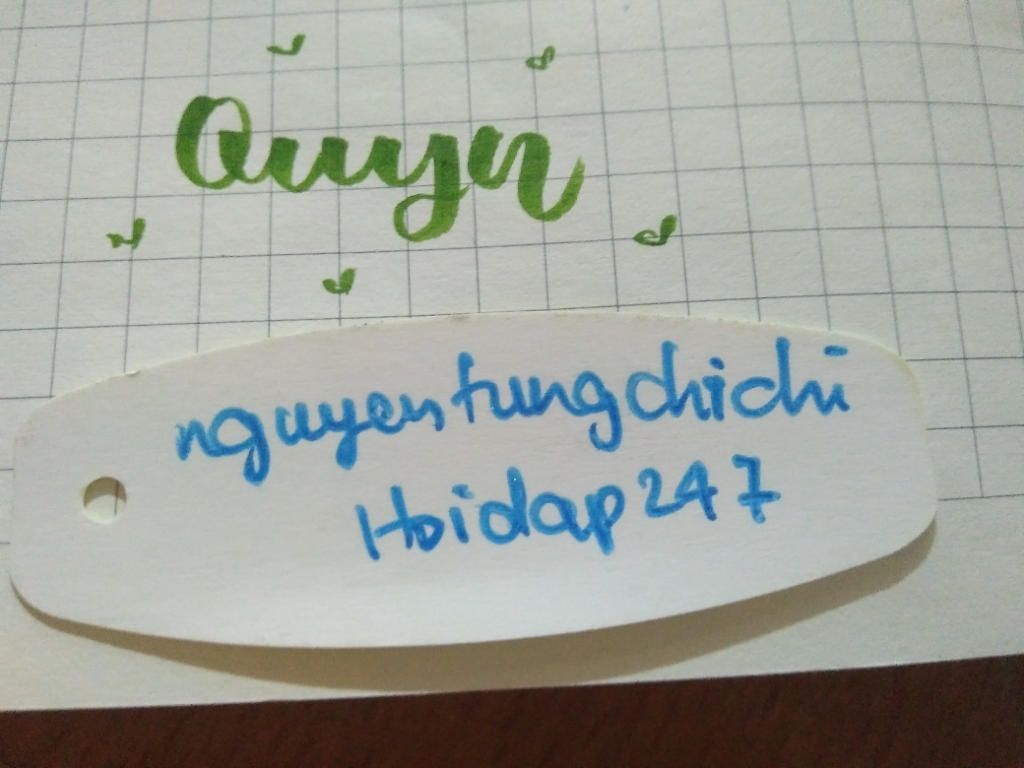 Quyn
nguyentungchichi
Hoidap247